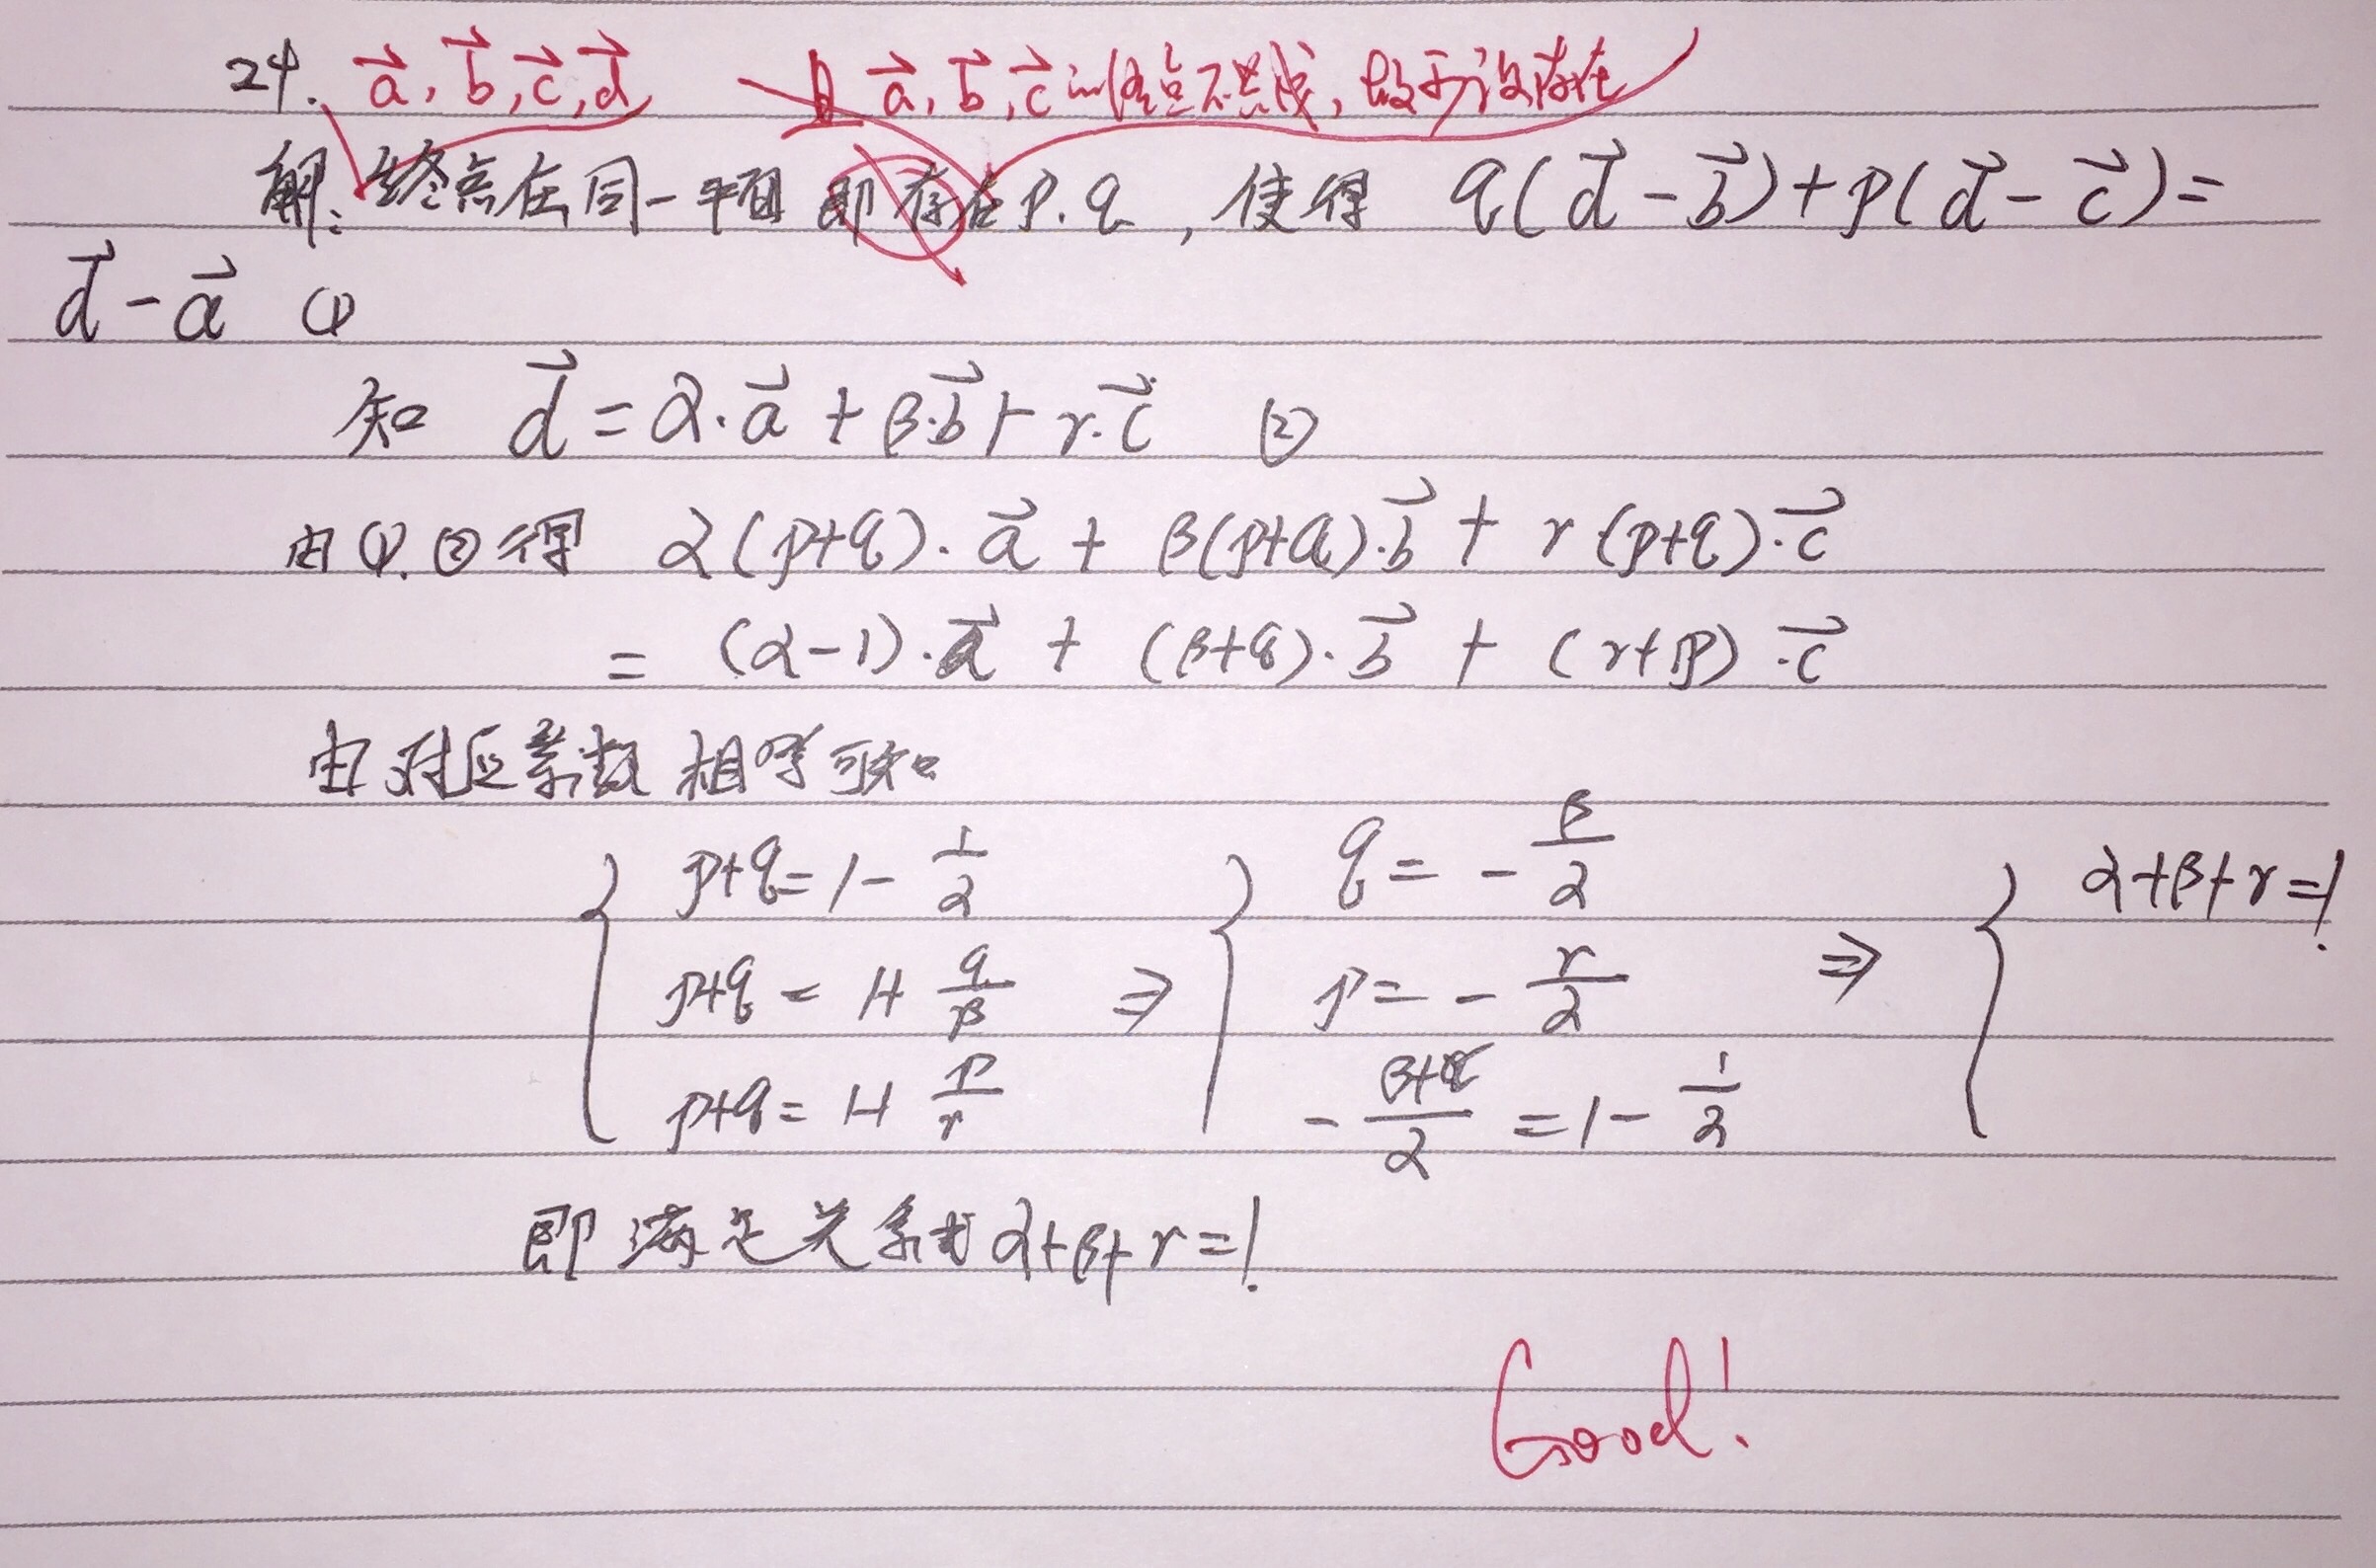 24. a⃗, b⃗, c⃗, d⃗ 且 a⃗, b⃗, c⃗ 的终点不共线, 故可设存在
解: 终点在同一平面 即存在 p.q , 使得 q(d⃗-b⃗)+p(d⃗-c⃗)=
d⃗-a⃗ ①
知 d⃗=α·a⃗+β·b⃗+r·c⃗ ②
由①.②得 α(p+q)·a⃗+β(p+q)·b⃗+r(p+q)·c⃗
=(α-1)·a⃗+(β+q)·b⃗+(r+p)·c⃗
由对应系数相等可知
{ p+q=1-1/α { q=-β/α { α+β+r=1
p+q=1+q/β ⇒ p=-r/α ⇒
p+q=1+p/r -(β+r)/α=1-1/α
即满足关系式α+β+r=1.
Good!